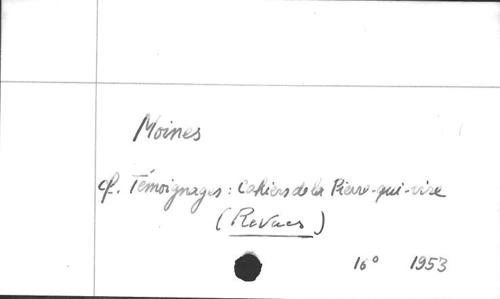 Moines
cf. Témoignages : Cahiers de la Pierre-qui-vire
(Revues)
16° 1953